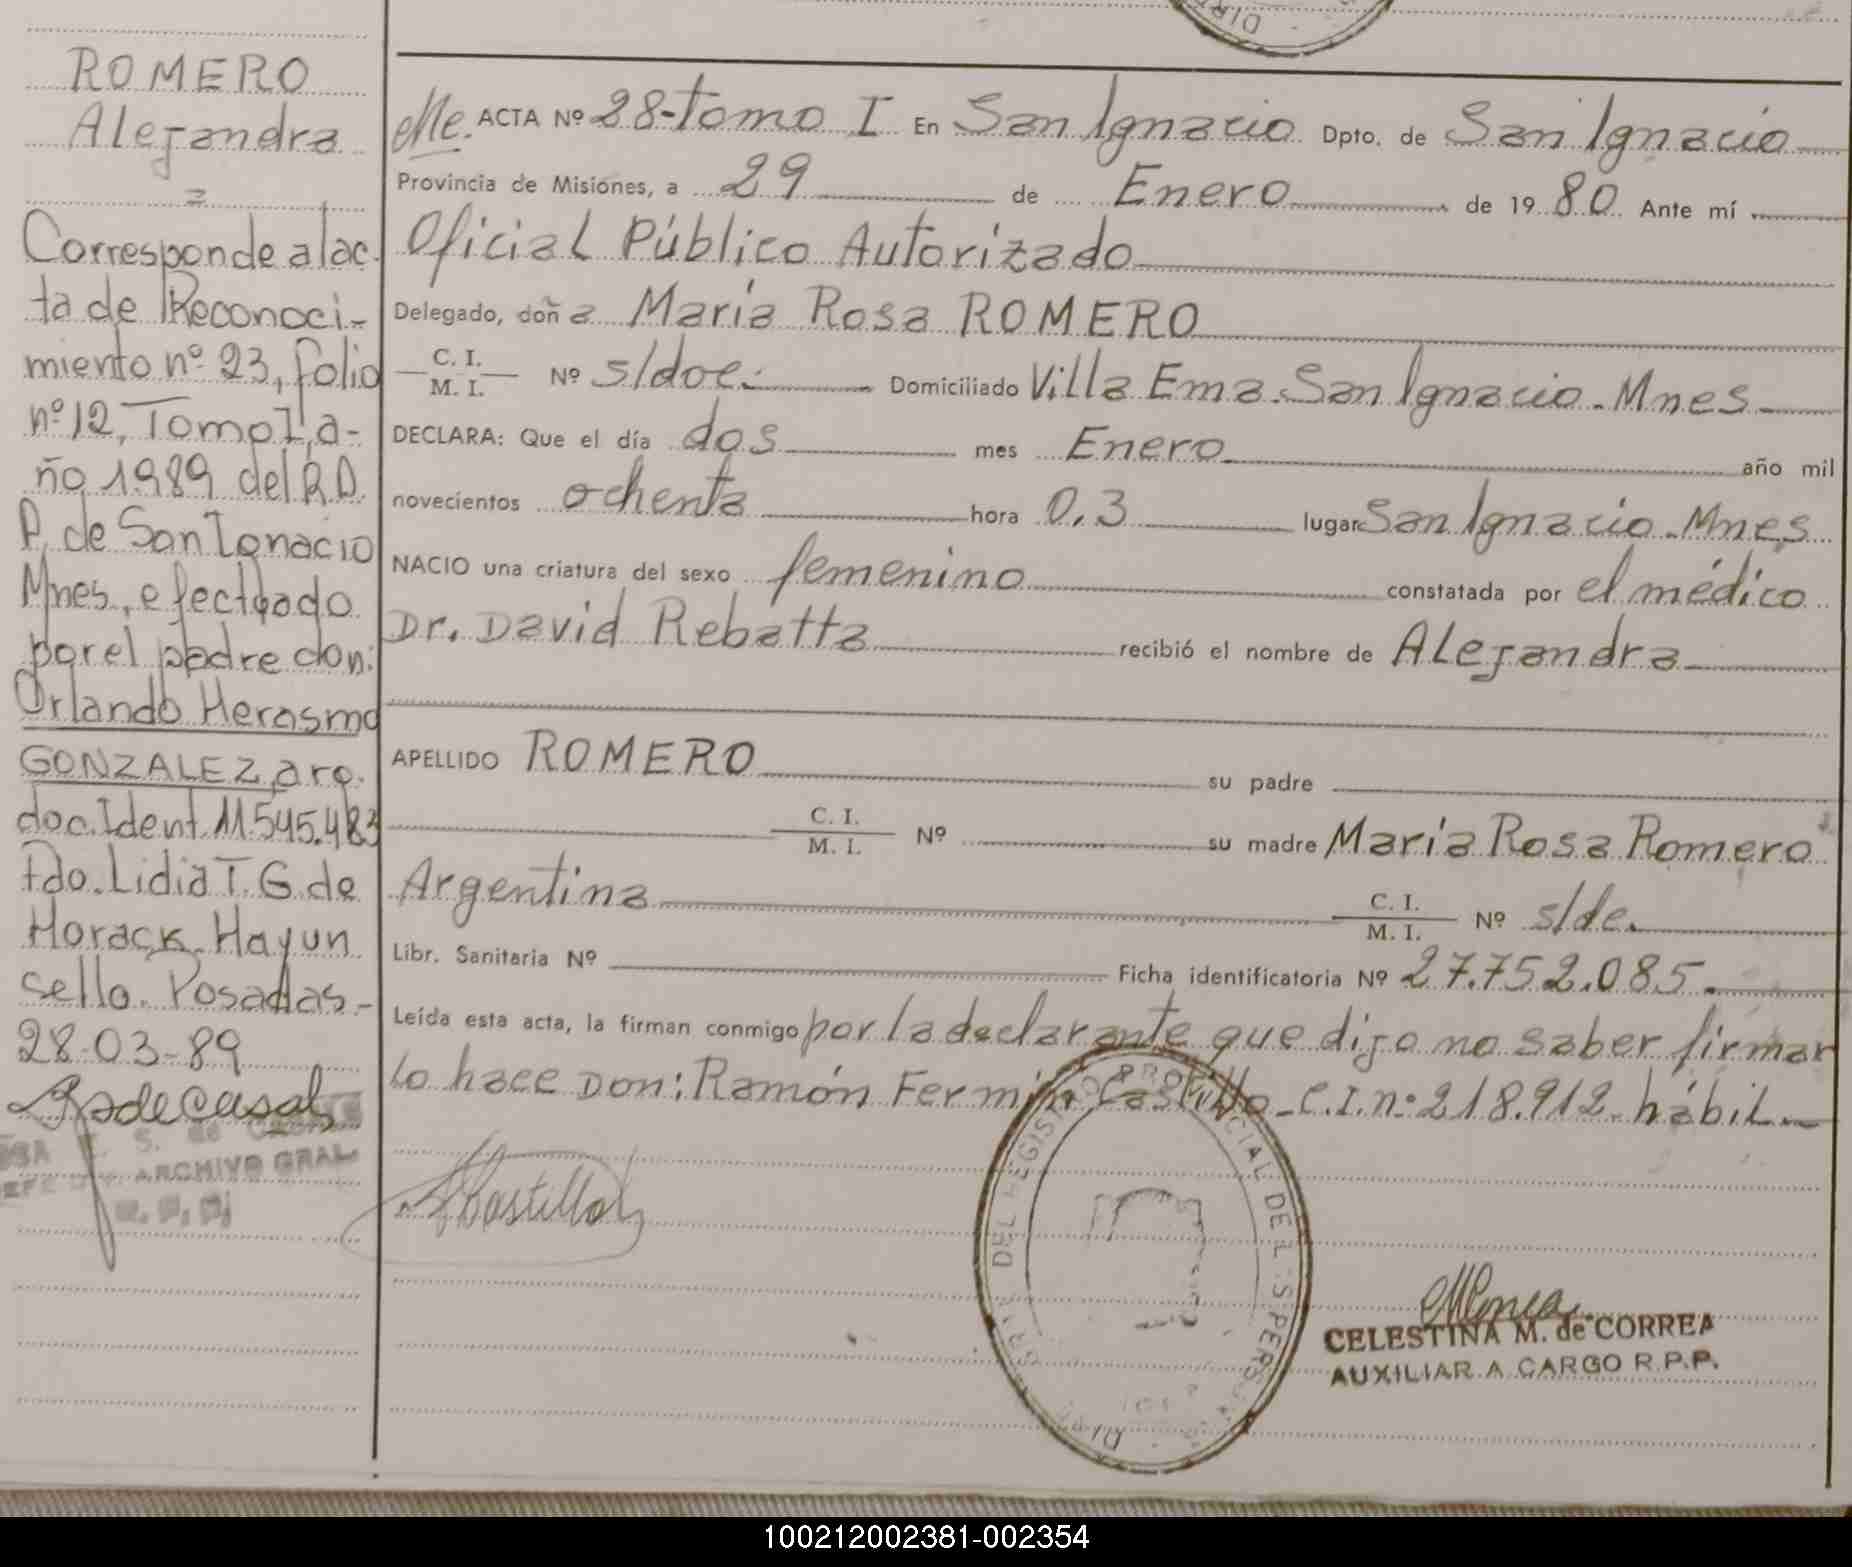 ROMERO
Alejandra
=
Corresponde al ac-
ta de Reconoci-
miento nº 23, folio
nº 12, Tomo I, a-
ño 1989 del R.D.
P. de San Ignacio
Mnes, efectuado
por el padre don:
Orlando Herasmo
GONZALEZ, arg.
doc. Ident. 11.545.483
Fdo. Lidia T. G. de
Horack. Hay un
sello. Posadas-
28-03-89
S. de
ARCHIVO GRAL
ACTA Nº 28-Tomo I En San Ignacio Dpto. de San Ignacio
Provincia de Misiones, a 29 de Enero de 1980 Ante mí
Oficial Público Autorizado
Delegado, doña María Rosa ROMERO
C. I.
M. I. Nº s/doc. Domiciliado Villa Ema. San Ignacio. Mnes
DECLARA: Que el día dos mes Enero año mil
novecientos ochenta hora 0,3 lugar San Ignacio. Mnes
NACIO una criatura del sexo femenino constatada por el médico
Dr. David Rebatta recibió el nombre de Alejandra
APELLIDO ROMERO su padre
C. I.
M. I. Nº su madre María Rosa Romero
Argentina C. I.
M. I. Nº s/de.
Libr. Sanitaria Nº Ficha identificatoria Nº 27.752.085.
Leída esta acta, la firman conmigo por la declarante que dijo no saber firmar
lo hace Don: Ramón Fermín Castillo. C.I.nº 218.912. hábil.
Castillo
DEL REGISTRO PROVINCIAL DE
CELESTINA M. de CORREA
AUXILIAR A CARGO R.P.P.
100212002381-002354